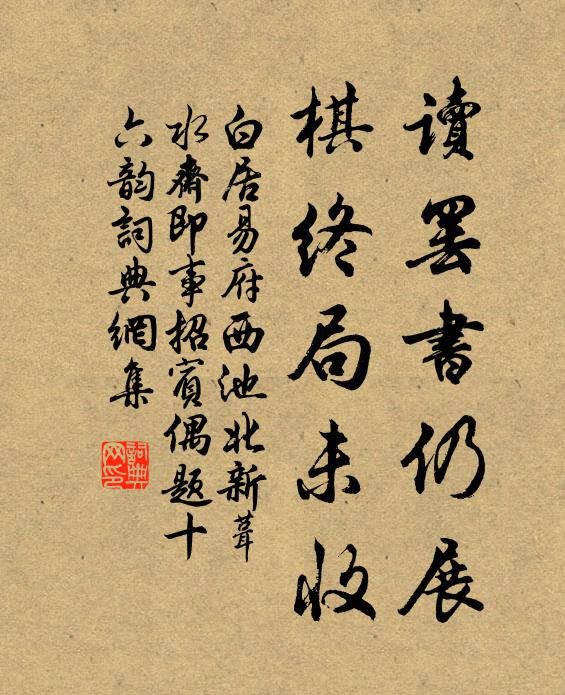 讀罷書仍展
棋終局未收
白居易府西池北新葺
水齋即事招賓偶題十
六韵詞典網集
詞典
网印